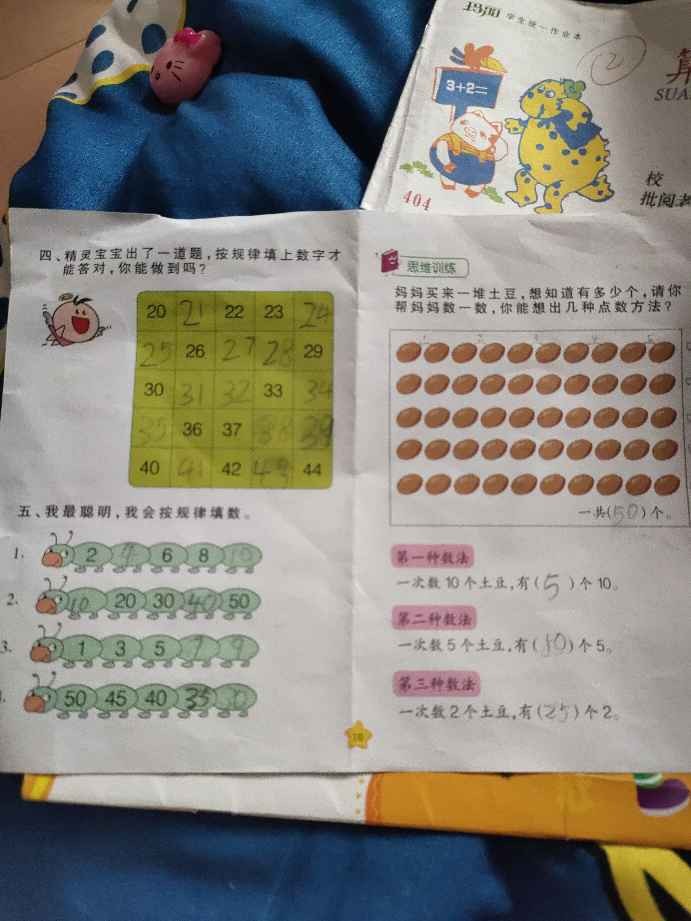 玛丽 学生统一作业本
3+2=
2
算
SUA
校
批阅者
404
四、精灵宝宝出了一道题，按规律填上数字才
能答对，你能做到吗？
20 21 22 23 24
25 26 27 28 29
30 31 32 33 34
35 36 37 38 39
40 41 42 43 44
五、我最聪明，我会按规律填数。
1. 2 4 6 8 10
2. 10 20 30 40 50
3. 1 3 5 7 9
50 45 40 35 30
思维训练
妈妈买来一堆土豆，想知道有多少个，请你
帮妈妈数一数，你能想出几种点数方法？
1 2 3 4 5
一共(50)个。
第一种数法
一次数10个土豆，有(5)个10。
第二种数法
一次数5个土豆，有(10)个5。
第三种数法
一次数2个土豆，有(25)个2。